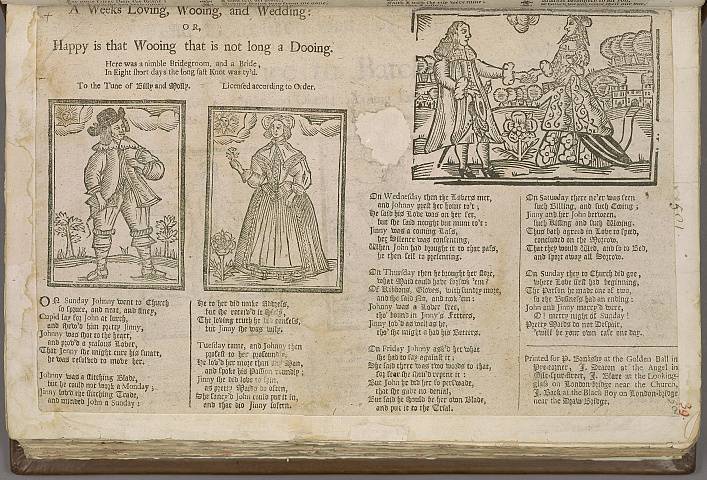 A Weeks Loving, Wooing, and Wedding:
OR,
Happy is that Wooing that is not long a Dooing.
Here was a nimble Bridegroom, and a Bride,
In Eight short days the long last Knot was ty'd.
To the Tune of Billy and Molly. Licensed according to Order.
ON Sunday Johnny went to Church
so spruce, and neat, and finey,
Cupid lay for John at lurch,
and shew'd him pretty Jinny,
Johnny was shot to the heart,
and prov'd a zealous Lover,
That Jenny she might cure his smart,
he was resolved to move her.
Johnny was a stitching Blade,
but he could not work a Monday;
Jinny lov'd the stitching Trade,
and minded John a Sunday:
He to her did make Address,
but she receiv'd it
The loving truth he did confess,
but Jinny she was wily.
Tuesday came, and Johnny then
profest to her profoundly,
He lov'd her more than any Man,
and spoke his Passion roundly;
Jinny she did love to
as pretty Maids do often,
She fancy'd John could put it in,
and that did Jinny soften.
On Wednesday then the Lovers met,
and Johnny prest her home to't;
He said his Love was on her set,
but she said mought but mum to't:
Jinny was a coming Lass,
her silence was consenting,
When John had brought it to that pass,
he then fell to presenting.
On Thursday then he brought her store,
what Maid could have forsook 'em?
Of Ribbons, Gloves, with sundry more,
and she said No, and took 'em:
Johnny was a Lover free,
tho' bound in Jinny's Fetters,
Jinny lov'd as well as he,
tho' she might a had his Betters.
On Friday Johnny ask'd her what
she had to say against it;
She said there was two words to that,
for fear she shou'd repent it:
But John he did her so perswade,
that she gave no denial,
But said he should be her own Blade,
and put it to the Tryal.
On Saturday there ne'er was seen
such Billing, and such Cooing;
Jinny and her John between,
such Billing and such Wooing.
Thus both agreed in Love to speed,
concluded on the Morrow,
That they would Wed, and so to Bed,
and sport away all Sorrow.
On Sunday they to Church did goe,
where Love first had beginning,
The Parson he made one of two,
so the Business had an ending:
John and Jinny merry were,
O! merry night of Sunday!
Pretty Maids do not Despair,
'twill be your own case one day.
Printed for P. Brooksby at the Golden Ball in
Pye-corner, J. Deacon at the Angel in
Gilt-spur-street, J. Blare at the Looking-
glass on London-bridge near the Church,
J. Back at the Black Boy on London-bridge
near the Draw Bridge.